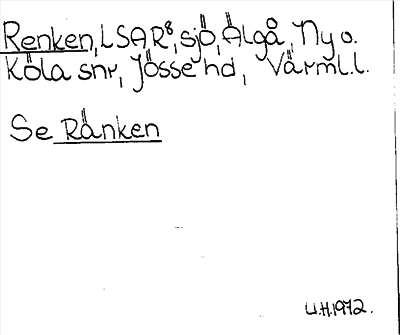 Renken, LSAR⁸, sjö, Älgå, Ny o.
Köla snr, Jösse hd, Värml.l.
Se Ränken
U.H.1972.